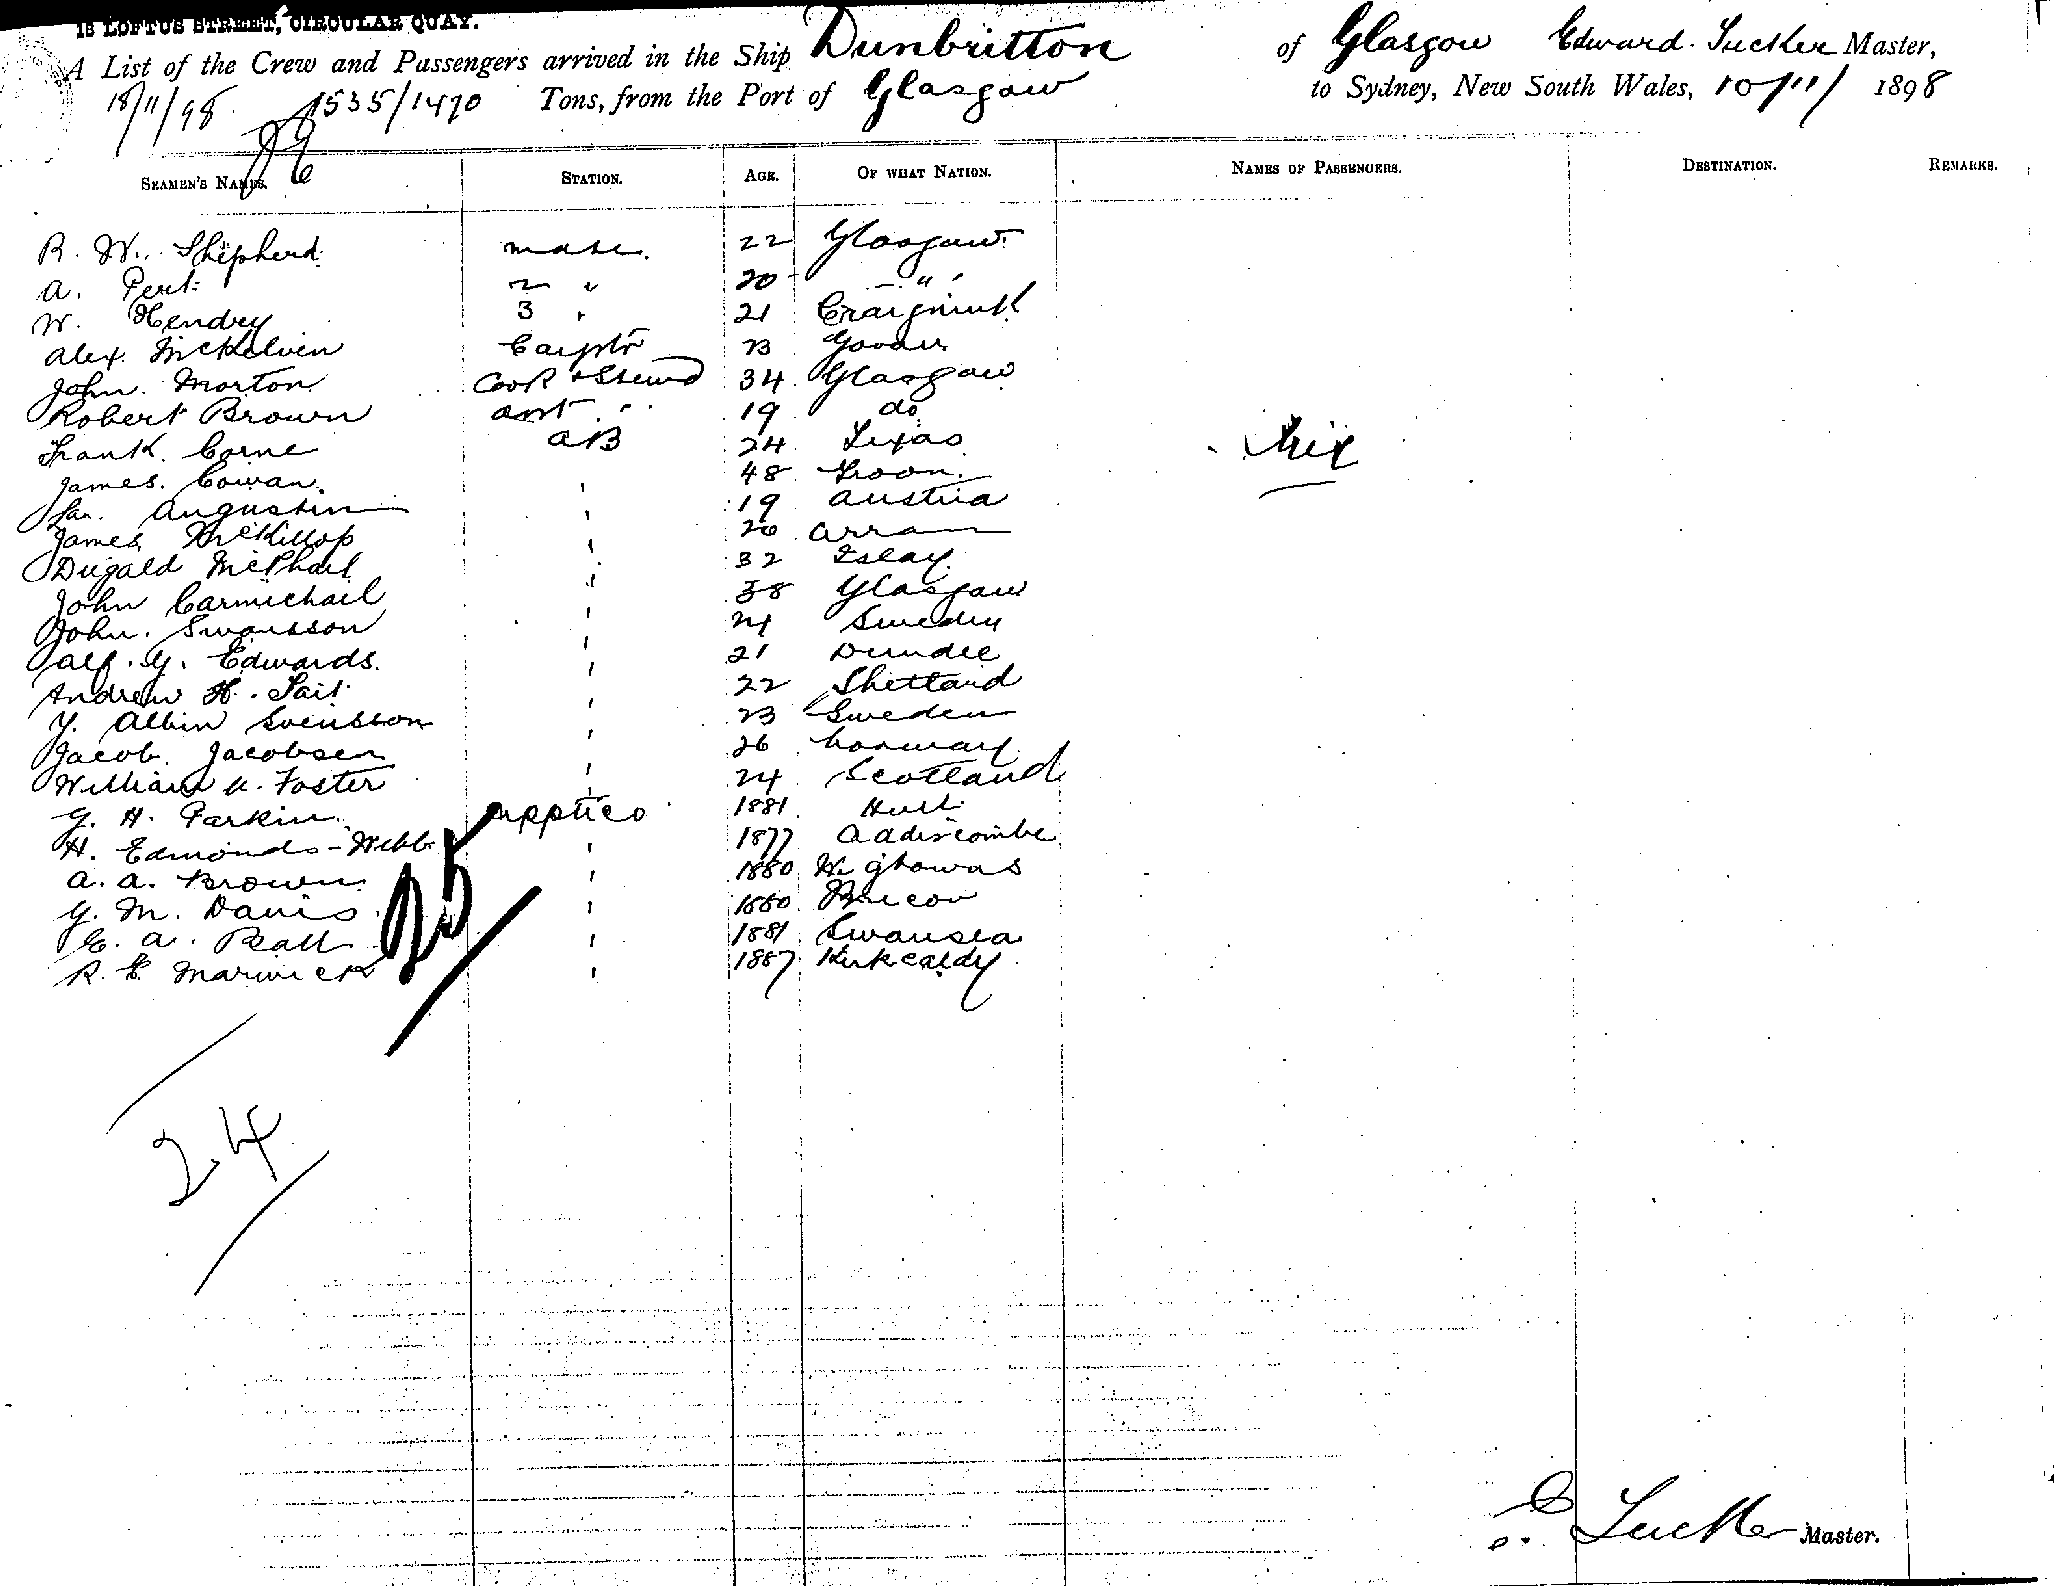 15 LOFTUS STREET, CIRCULAR QUAY.
A List of the Crew and Passengers arrived in the Ship Dunbritton of Glasgow Edward Tucker Master,
18/11/98 1535/1470 Tons, from the Port of Glasgow to Sydney, New South Wales, 10/11/ 1898
SEAMEN'S NAMES. STATION. AGE. OF WHAT NATION. NAMES OF PASSENGERS. DESTINATION. REMARKS.
R. W. Shepherd mate. 22 Glasgow
A. Pert 2 " 20 "
W. Hendry 3 " 21
Alex McKelvin Carptr 23
John Morton Cook & Stewd 34 Glasgow
Robert Brown asst " 19 do
Frank Corne AB 24 Texas
James Cowan 48 Troon
Augustin ' 19 Austria
James McKillop ' 20 Arran
Dugald McPhail ' 32 Islay
John Carmichail ' 38 Glasgow
John Swansson ' 24 Sweden
Alf. G. Edwards ' 21 Dundee
Andrew H. Tait ' 22 Shetland
Y. Albin Svensson ' 23 Sweden
Jacob Jacobsen ' 26 Norway
William Foster ' 24 Scotland
G. H. Parkin Apptics 1881 Hull
H. Edmonds-Webb ' 1877 Addiscombe
A. A. Brown ' 1880
G. M. Davis ' 1880 Brecon
E. A. Beall ' 1881 Swansea
R. E. Marwick ' 1887 Kirkcaldy
Nix
25
24
E. Tucker Master.